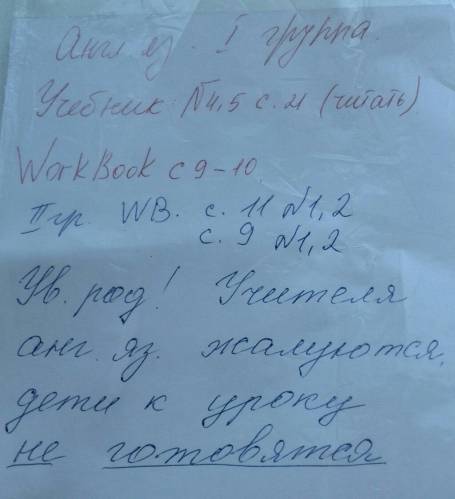 Англ яз. I группа.
Учебник: №4,5 с. 21 (читать)
WorkBook с 9-10
II гр. WB. с. 11 №1,2
с. 9 №1,2
Ув. род! Учителя
анг. яз. жалуются,
дети к уроку
не готовятся